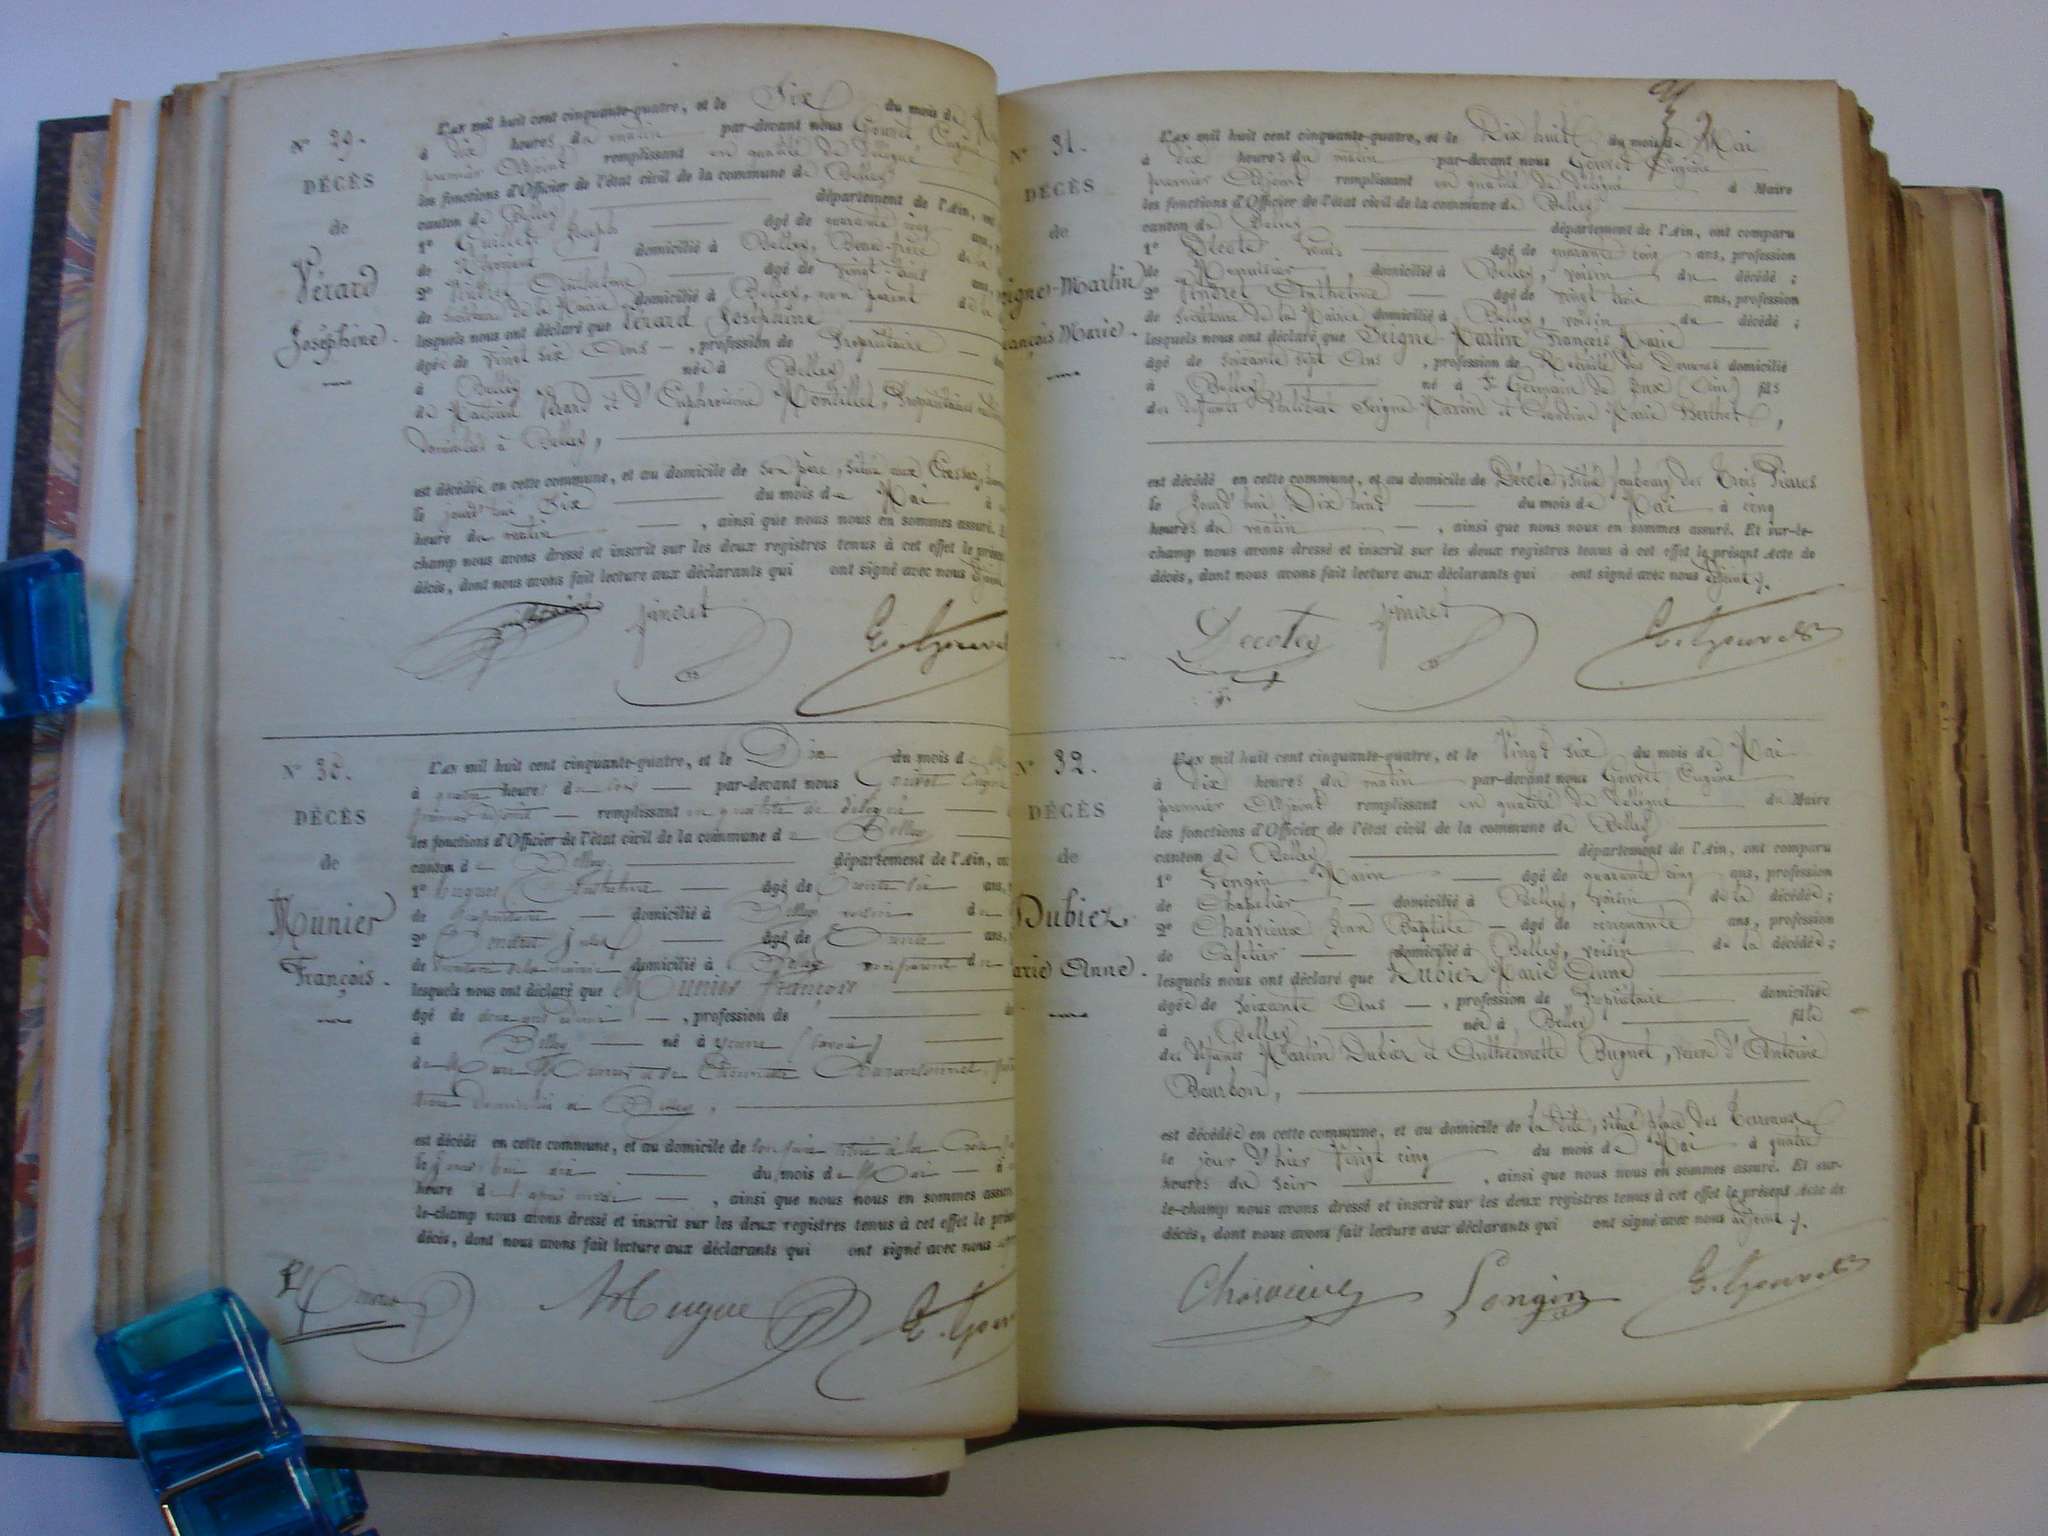 N° 29.
DÉCÈS
de
Vérard
Joséphine.
L'an mil huit cent cinquante-quatre, et le Six du mois de
à dix heures du matin par-devant nous Gouvret Eugène
premier Adjoint remplissant en qualité de délégué
les fonctions d'Officier de l'état civil de la commune de Belley
canton de Belley département de l'Ain, ont
1° Guillet Joseph âgé de quarante cinq ans,
de domicilié à Belley, Beau-frère de la
2° Vindret Anthelme âgé de vingt trois ans,
de Secrétaire de la Mairie domicilié à Belley, non parent de la
lesquels nous ont déclaré que Vérard Joséphine
âgée de vingt six Ans, profession de Propriétaire
à Belley née à Belley
de Vérard et d'Euphrosine Montillet, Propriétaires
domiciliés à Belley,
est décédée en cette commune, et au domicile de son père, situé aux
le jourd'hui Six du mois de Mai à
heure du matin, ainsi que nous nous en sommes assuré.
champ nous avons dressé et inscrit sur les deux registres tenus à cet effet le présent
décès, dont nous avons fait lecture aux déclarants qui ont signé avec nous Adjoint
E. Gouvret
N° 30.
DÉCÈS
de
Munier
François.
L'an mil huit cent cinquante-quatre, et le Dix du mois de
à quatre heures du soir par-devant nous Gouvret Eugène
premier adjoint remplissant en qualité de délégué
les fonctions d'Officier de l'état civil de la commune de Belley
canton de Belley département de l'Ain, ont
1° Anthelme âgé de trente six ans,
de domicilié à Belley voisin du
2° âgé de trente ans,
de Secrétaire de la mairie domicilié à Belley non parent du
lesquels nous ont déclaré que Munier François
âgé de deux ans et demi, profession de
à Belley né à Yenne (Savoie)
de Munier et de
domiciliés à Belley,
est décédé en cette commune, et au domicile de son père situé à la
le jourd'hui dix du mois de Mai à
heure de l'après midi, ainsi que nous nous en sommes assuré
le-champ nous avons dressé et inscrit sur les deux registres tenus à cet effet le présent
décès, dont nous avons fait lecture aux déclarants qui ont signé avec nous
Hugue
N° 31.
DÉCÈS
de
Seigne-Martin
François Marie.
L'an mil huit cent cinquante-quatre, et le Dix huit du mois de Mai
à dix heures du matin par-devant nous Gouvret Eugène
premier Adjoint remplissant en qualité de délégué du Maire
les fonctions d'Officier de l'état civil de la commune de Belley
canton de Belley département de l'Ain, ont comparu
1° Décote Louis âgé de quarante cinq ans, profession
de Menuisier, domicilié à Belley, voisin du décédé;
2° Vindret Anthelme âgé de vingt trois ans, profession
de Secrétaire de la Mairie domicilié à Belley, voisin du décédé;
lesquels nous ont déclaré que Seigne-Martin François Marie
âgé de soixante sept Ans, profession de Retraité des Douanes domicilié
à Belley né à St Germain de Joux (Ain) fils
des défunts Philibert Seigne-Martin et Claudine Marie Berthet,
est décédé en cette commune, et au domicile de Décote, situé faubourg des Trois Pierres
le jourd'hui Dix huit du mois de Mai à cinq
heures du matin, ainsi que nous nous en sommes assuré. Et sur-le-
champ nous avons dressé et inscrit sur les deux registres tenus à cet effet le présent Acte de
décès, dont nous avons fait lecture aux déclarants qui ont signé avec nous adjoint.
Decotes
E. Gouvret
N° 32.
DÉCÈS
de
Dubiez
Marie Anne.
L'an mil huit cent cinquante-quatre, et le Vingt six du mois de Mai
à dix heures du matin par-devant nous Gouvret Eugène
premier Adjoint remplissant en qualité de délégué du Maire
les fonctions d'Officier de l'état civil de la commune de Belley
canton de Belley département de l'Ain, ont comparu
1° Longin Marin âgé de quarante cinq ans, profession
de Chapelier domicilié à Belley, voisin de la décédée;
2° Charvieux Jean Baptiste âgé de cinquante ans, profession
de Cafetier domicilié à Belley, voisin de la décédée;
lesquels nous ont déclaré que Dubiez Marie Anne
âgée de soixante Ans, profession de Propriétaire domiciliée
à Belley née à Belley fille
des défunts Martin Dubiez et Anthelmette Bugnet, veuve d'Antoine
Bourbon,
est décédée en cette commune, et au domicile de la dite, situé place des Terreaux,
le jour d'hier Vingt cinq du mois de Mai à quatre
heures du soir, ainsi que nous nous en sommes assuré. Et sur-
le-champ nous avons dressé et inscrit sur les deux registres tenus à cet effet le présent Acte de
décès, dont nous avons fait lecture aux déclarants qui ont signé avec nous adjoint.
Charvieux Longin E. Gouvret